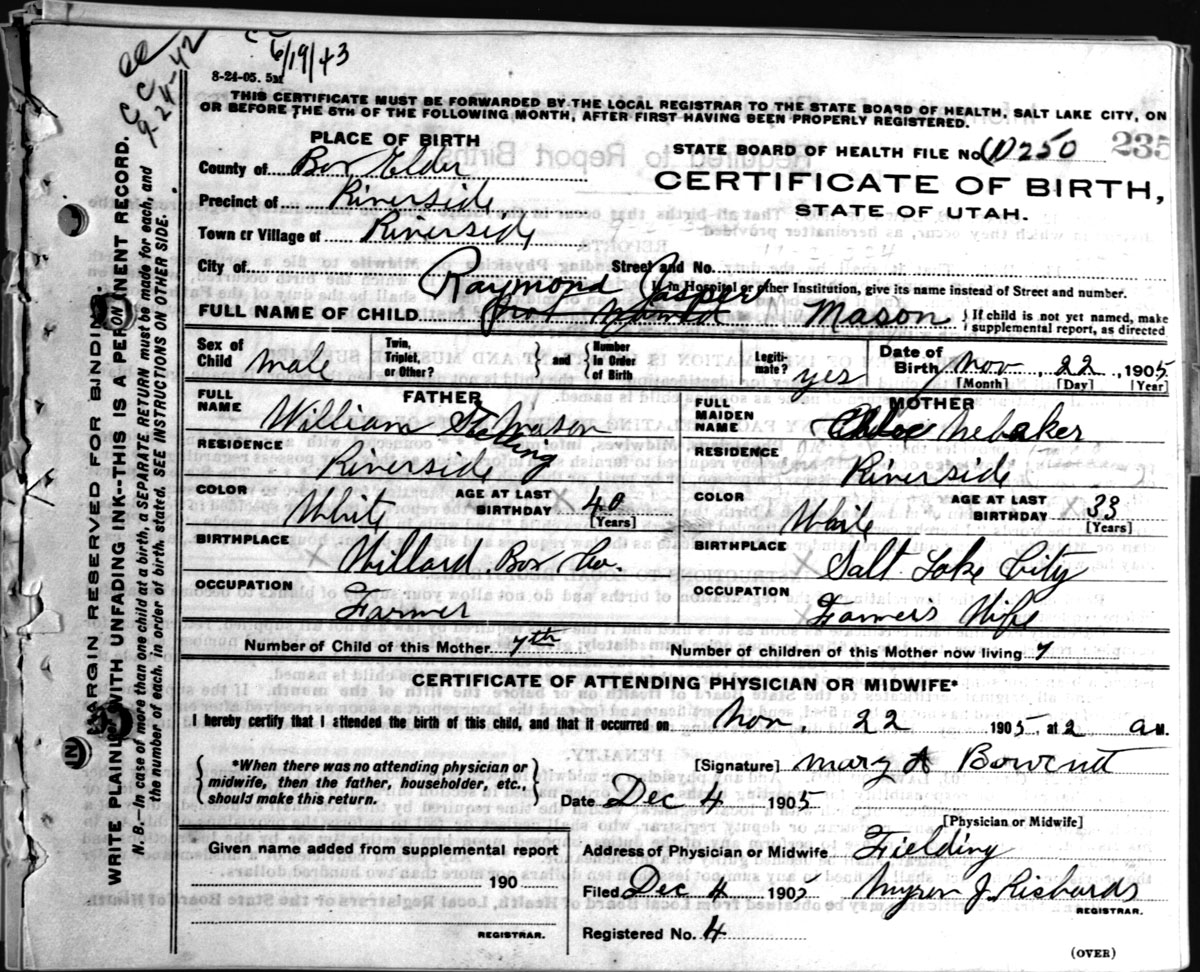 6/19/43
9-24-42
8-24-05. 5M
THIS CERTIFICATE MUST BE FORWARDED BY THE LOCAL REGISTRAR TO THE STATE BOARD OF HEALTH, SALT LAKE CITY, ON
OR BEFORE THE 5TH OF THE FOLLOWING MONTH, AFTER FIRST HAVING BEEN PROPERLY REGISTERED.
PLACE OF BIRTH
STATE BOARD OF HEALTH FILE No. 250 235
County of Box Elder
CERTIFICATE OF BIRTH,
Precinct of Riverside
STATE OF UTAH.
Town or Village of Riverside
City of Street and No.
If in Hospital or other Institution, give its name instead of Street and number.
Raymond Jasper
FULL NAME OF CHILD not named Mason { If child is not yet named, make
supplemental report, as directed
Sex of Child Male Twin, Triplet, or Other? } and { Number in Order of Birth Legiti-mate? yes Date of Birth Nov 22, 1905
[Month] [Day] [Year]
FATHER
FULL NAME William Mason
RESIDENCE Riverside
COLOR White AGE AT LAST BIRTHDAY 40
[Years]
BIRTHPLACE Willard Box Co.
OCCUPATION Farmer
MOTHER
FULL MAIDEN NAME Chloe Nebaker
RESIDENCE Riverside
COLOR White AGE AT LAST BIRTHDAY 33
[Years]
BIRTHPLACE Salt Lake City
OCCUPATION Farmer's Wife
Number of Child of this Mother 7th Number of children of this Mother now living 7
CERTIFICATE OF ATTENDING PHYSICIAN OR MIDWIFE*
I hereby certify that I attended the birth of this child, and that it occurred on Nov. 22 1905, at 2 a M.
*When there was no attending physician or
midwife, then the father, householder, etc.,
should make this return.
[Signature] Mary A Bowcutt
Date Dec 4 1905
[Physician or Midwife]
Given name added from supplemental report
190
REGISTRAR.
Address of Physician or Midwife Fielding
Filed Dec 4 1905 Myron J. Richards
REGISTRAR.
Registered No. 4
(OVER)
MARGIN RESERVED FOR BINDING.
WRITE PLAINLY WITH UNFADING INK--THIS IS A PERMANENT RECORD.
N. B.—In case of more than one child at a birth, a SEPARATE RETURN must be made for each, and
the number of each, in order of birth, stated. SEE INSTRUCTIONS ON OTHER SIDE.